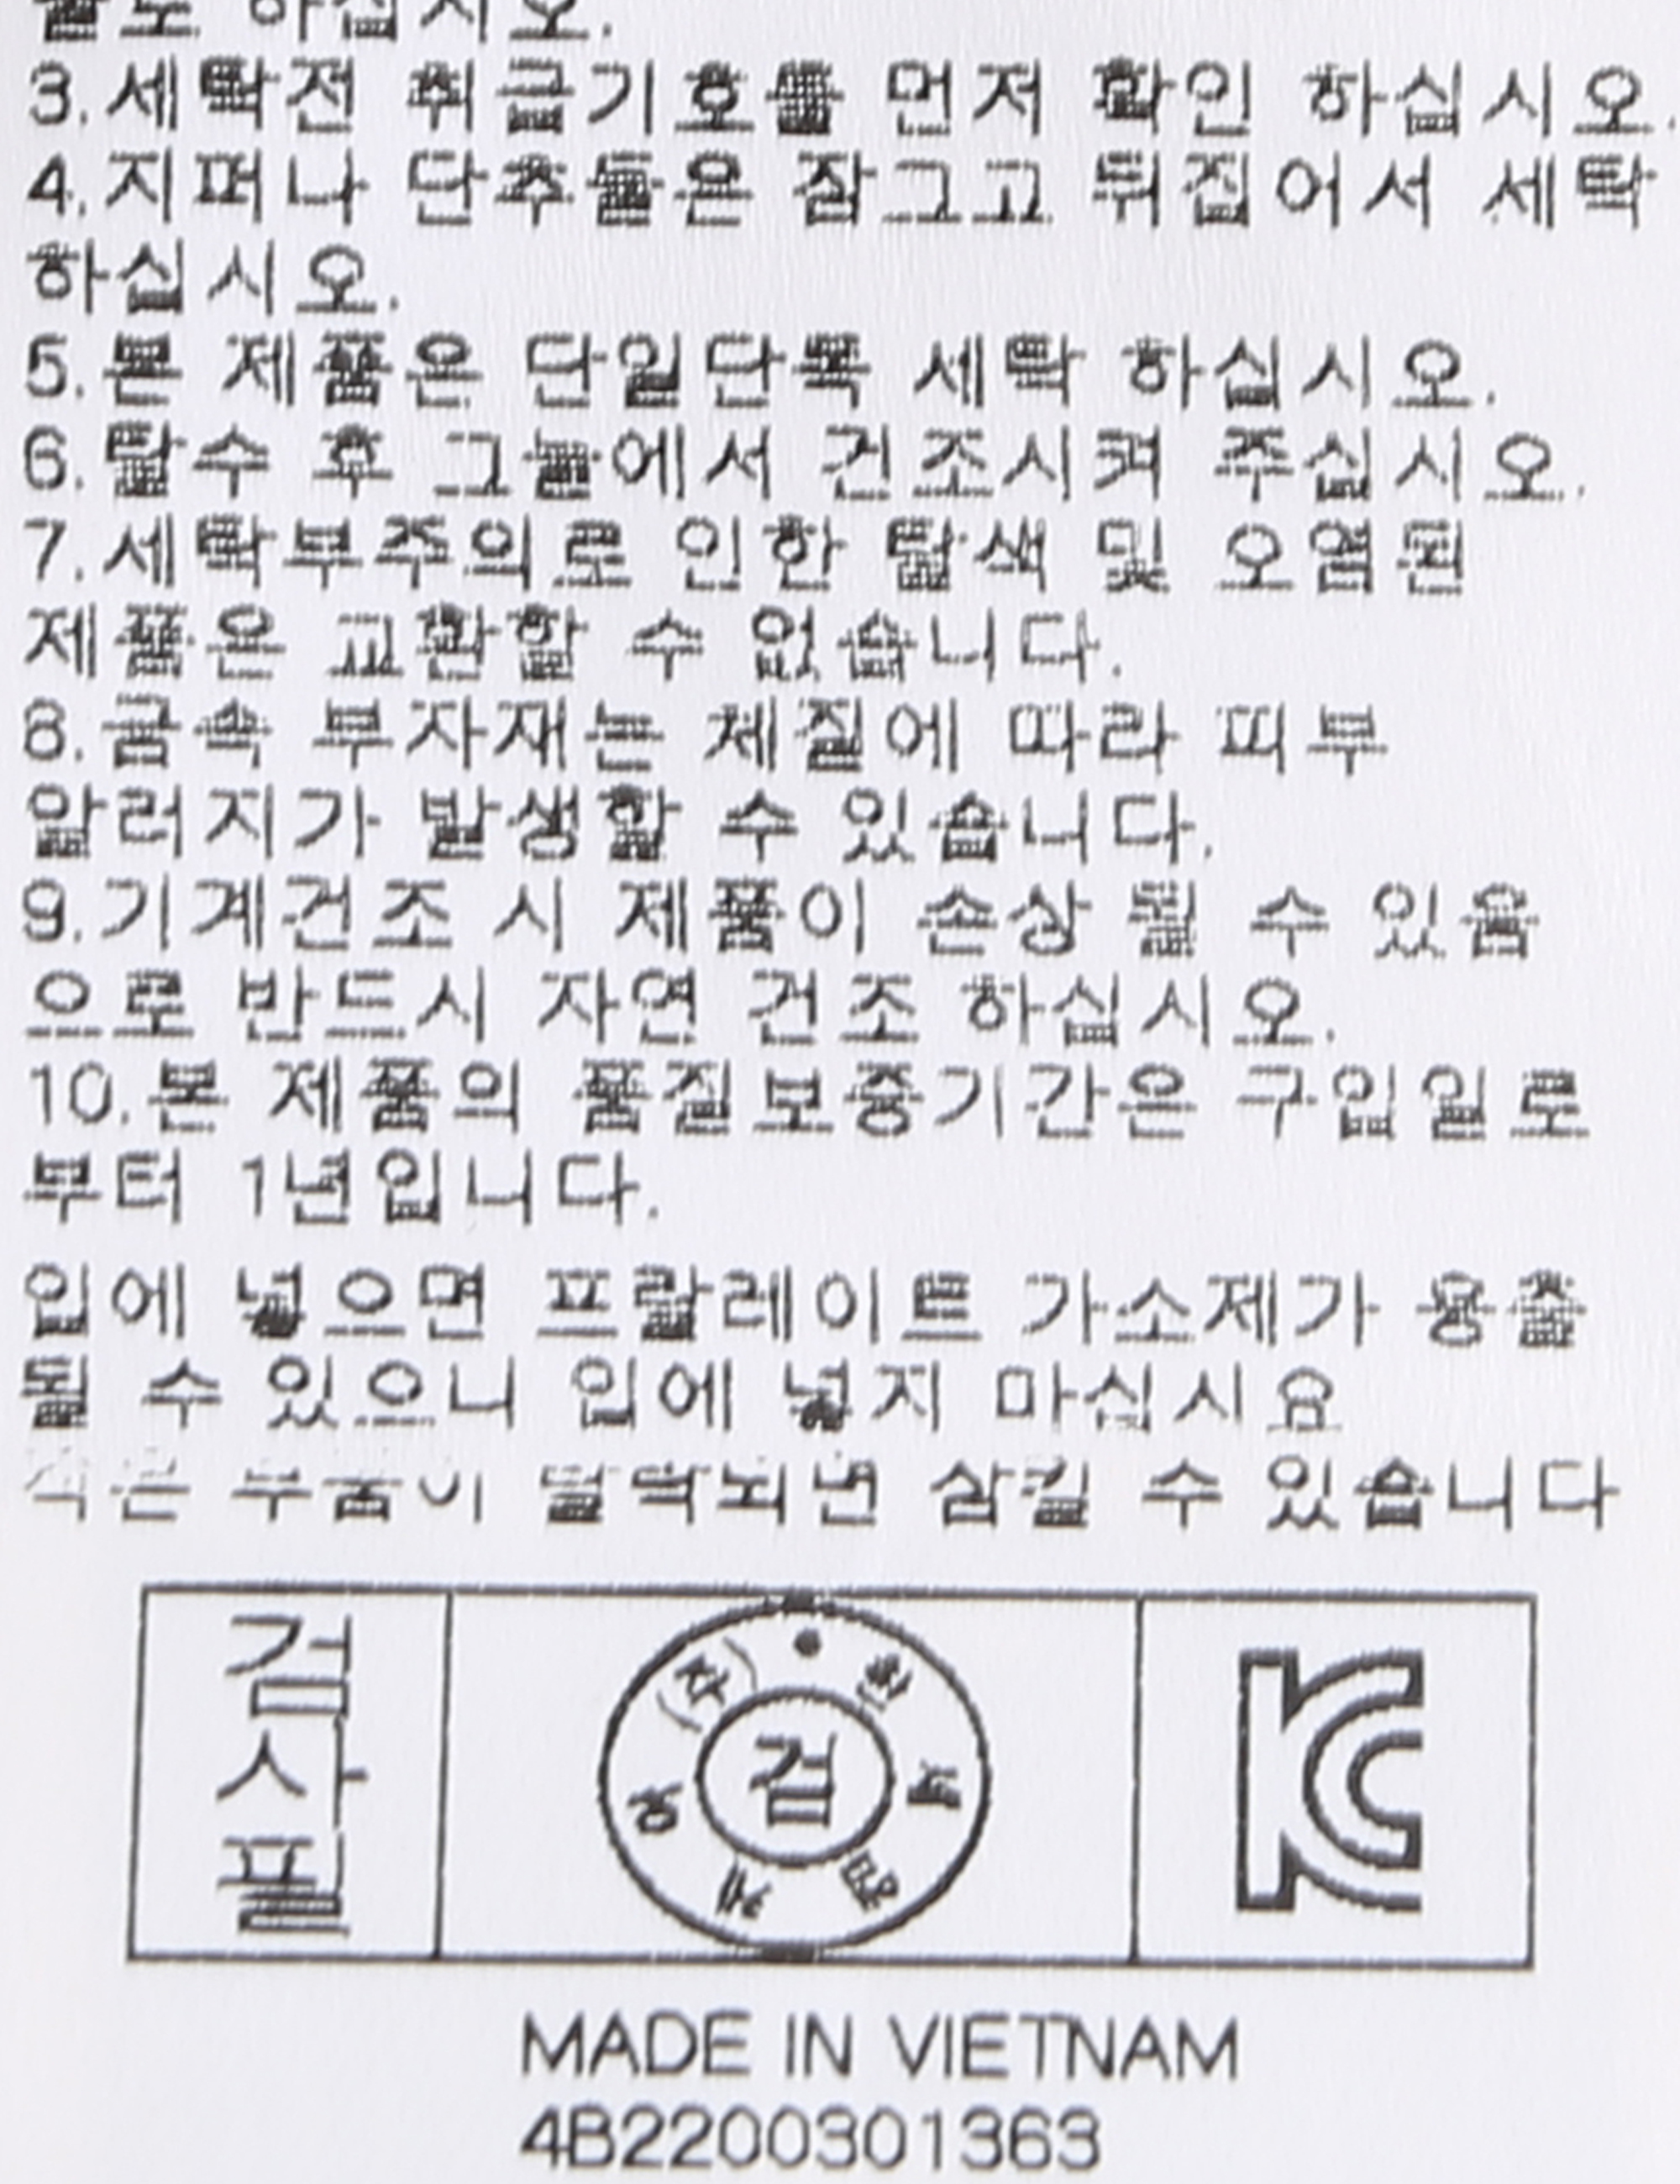 하십시오.
3.세탁전 취급기호를 먼저 확인 하십시오.
4.지퍼나 단추들은 잠그고 뒤집어서 세탁
하십시오.
5.본 제품은 단일단독 세탁 하십시오.
6.탈수 후 그늘에서 건조시켜 주십시오.
7.세탁부주의로 인한 탈색 및 오염된
제품은 교환할 수 없습니다.
8.금속 부자재는 체질에 따라 피부
알러지가 발생할 수 있습니다.
9.기계건조 시 제품이 손상 될 수 있음
으로 반드시 자연 건조 하십시오.
10.본 제품의 품질보증기간은 구입일로
부터 1년입니다.
입에 넣으면 프탈레이트 가소제가 용출
될 수 있으니 입에 넣지 마십시요
작은 부품이 탈락되면 삼킬 수 있습니다
검사필
검
(주)한
KC
MADE IN VIETNAM
4B2200301363